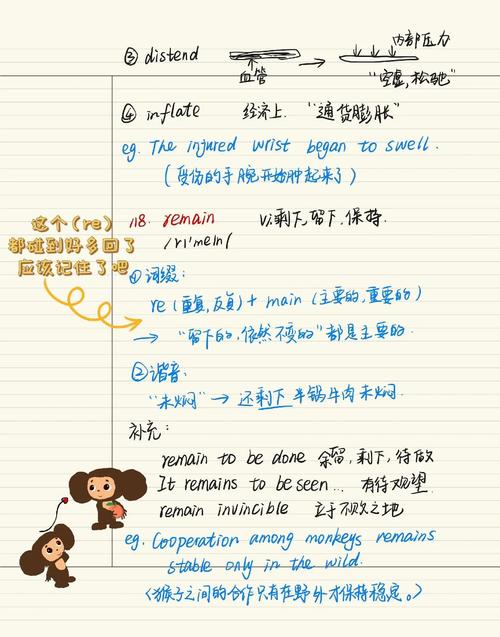 ③ distend
血管
内部压力
"空虚,松驰"
④ inflate 经济上. "通货膨胀"
eg. The injured wrist began to swell.
(受伤的手腕开始肿起来了)
这个(re)
都碰到好多回了
应该记住了吧
118. remain vi.剩下,留下.保持.
/rɪ'meɪn/
①词缀:
re(重复,反复)+ main (主要的,重要的)
→ "留下的,依然不变的"都是主要的.
②谐音:
"未焖" → 还剩下半锅牛肉未焖.
补充:
remain to be done 余留,剩下,待做
It remains to be seen... 有待观望.
remain invincible 立于不败之地
eg. Cooperation among monkeys remains
stable only in the wild.
(猴子之间的合作只有在野外才保持稳定。)